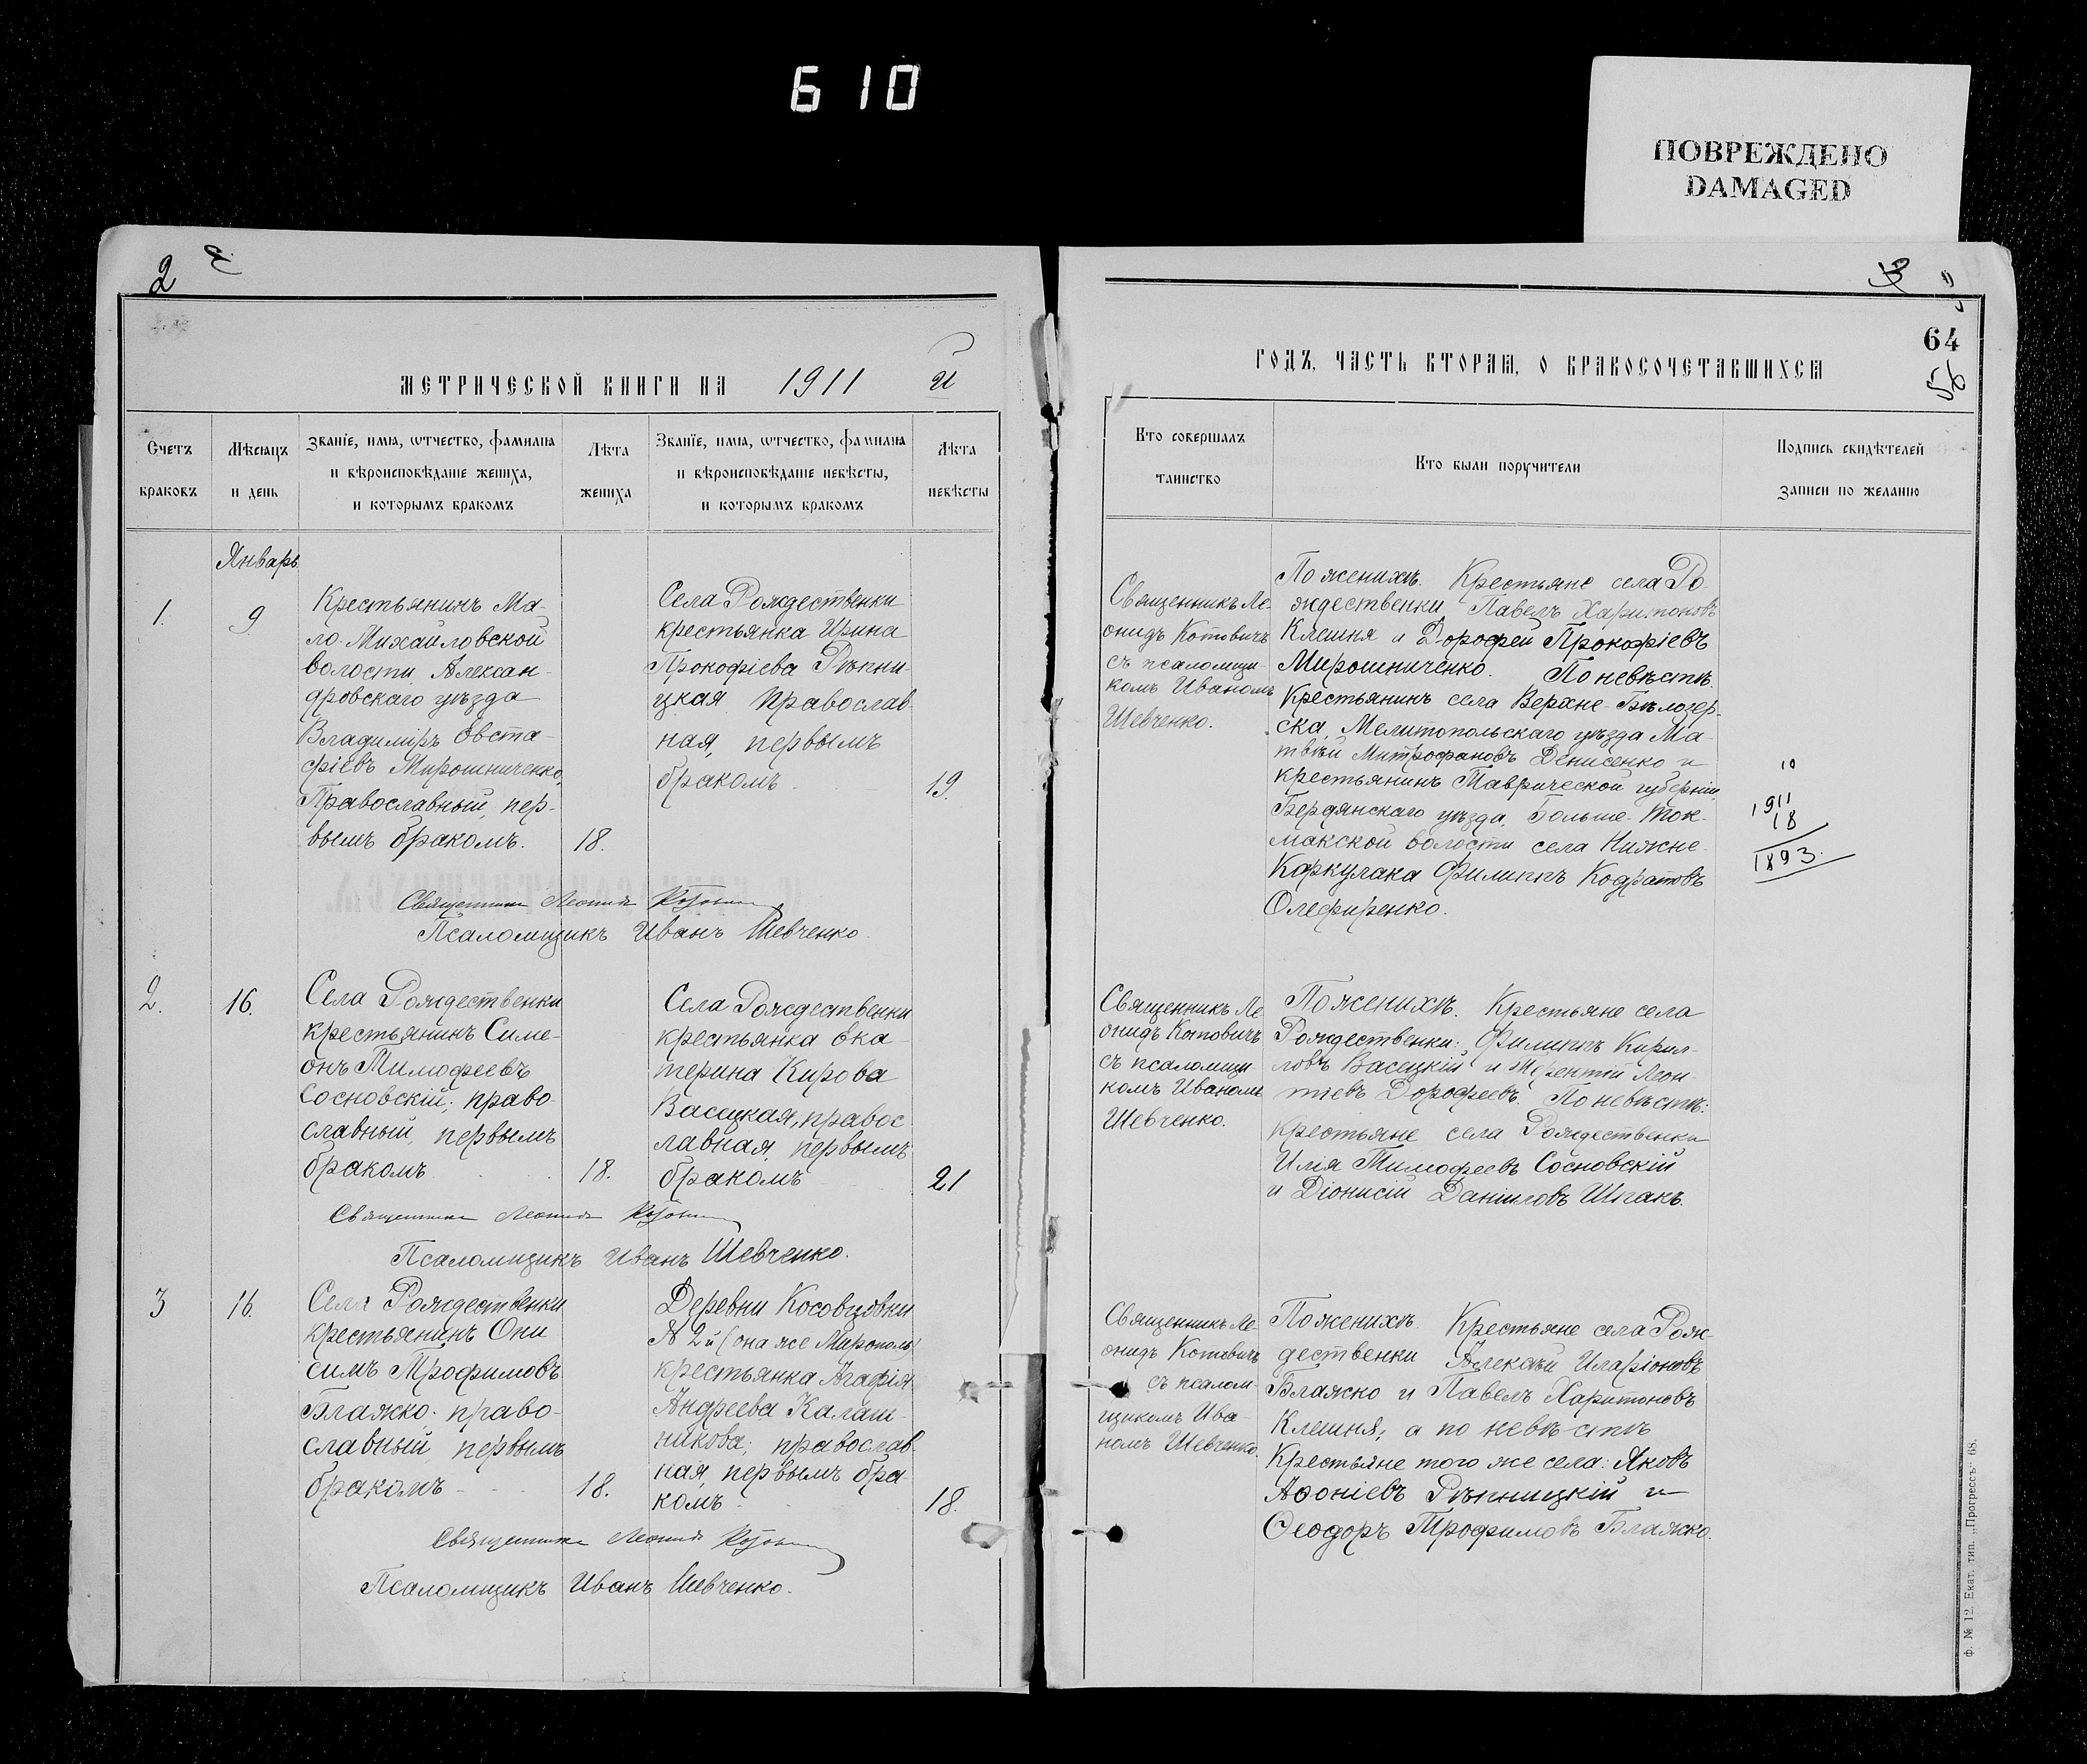 610
ПОВРЕЖДЕНО
DAMAGED
2
МЕТРИЧЕСКОЙ КНИГИ НА 1911 й
Счетъ браковъ
Мѣсяцъ и день
Званіе, имя, отчество, фамилія
и вѣроисповѣданіе жениха,
и которымъ бракомъ
Лѣта жениха
Званіе, имя, отчество, фамилія
и вѣроисповѣданіе невѣсты,
и которымъ бракомъ
Лѣта невѣсты
Январь
1. 9
Крестьянинъ Ма-
ло-Михайловской
волости, Алексан-
дровскаго уѣзда
Владиміръ Евста-
фіевъ Мирошниченко,
Православный, пер-
вымъ бракомъ. 18.
Села Рождественки
крестьянка Ирина
Прокофіева Рѣпни-
цкая Православ-
ная, первымъ
бракомъ 19.
Священникъ Леонидъ Котовичъ
Псаломщикъ Иванъ Шевченко.
2. 16.
Села Рождественки
крестьянинъ Симе-
онъ Тимофеевъ
Сосновскій; право-
славный, первымъ
бракомъ 18.
Села Рождественки
крестьянка Ека-
терина Кирова
Васецкая, правос
лавная, первымъ
бракомъ 21
Священникъ Леонидъ Котовичъ
Псаломщикъ Иванъ Шевченко.
3 16.
Села Рождественки
крестьянинъ Они
симъ Трофимовъ
Блажко: право-
славный, первымъ
бракомъ - - - 18.
Деревни Косовцовки
№ 2й (она же Мирополь)
крестьянка Агафія
Андреева Калаш-
никова; православ-
ная, первымъ бра
комъ 18.
Священникъ Леонидъ Котовичъ
Псаломщикъ Иванъ Шевченко.
3
64
56
ГОДЪ, ЧАСТЬ ВТОРАЯ, О БРАКОСОЧЕТАВШИХСЯ
Кто совершалъ
таинство
Кто были поручители
Подпись свидѣтелей
записи по желанію
Священникъ Ле-
онидъ Котовичъ
съ псаломщи-
комъ Иваномъ
Шевченко.
По женихѣ. Крестьяне села Ро-
ждественки Павелъ Харитоновъ
Клешня и Дорофей Прокофіевъ
Мирошниченко. По невѣстѣ.
Крестьянинъ села Верхне-Бѣлозер-
ска, Мелитопольскаго уѣзда Ма-
твѣй Митрофановъ Денисенко и
крестьянинъ Таврической губерніи,
Бердянскаго уѣзда, Больше-Ток-
макской волости села Нижне-
Коркулака Филиппъ Кодратовъ
Олефиренко.
10
1911
18
1893.
Священникъ Ле
онидъ Котовичъ
съ псаломщи
комъ Иваномъ
Шевченко.
По женихѣ. Крестьяне села
Рождественки: Филиппъ Кирил-
ловъ Васецкій и Терентій Леон-
тіевъ Дорофеевъ. По невѣстѣ:
крестьяне села Рождественки
Илія Тимофеевъ Сосновскій
и Діонисій Даніиловъ Шпакъ.
Священникъ Ле-
онидъ Котовичъ
съ псалом-
щикомъ Ива-
номъ Шевченко.
По женихѣ. Крестьяне села Рож-
дественки Алексѣй Иларіоновъ
Блажко и Павелъ Харитоновъ
Клешня; а по невѣстѣ
Крестьяне того же села: Яковъ
Аѳоніевъ Рѣпницкій и
Ѳеодоръ Трофимовъ Блажко.
Ф. № 12. Екат. тип. „Прогрессъ“ 68.